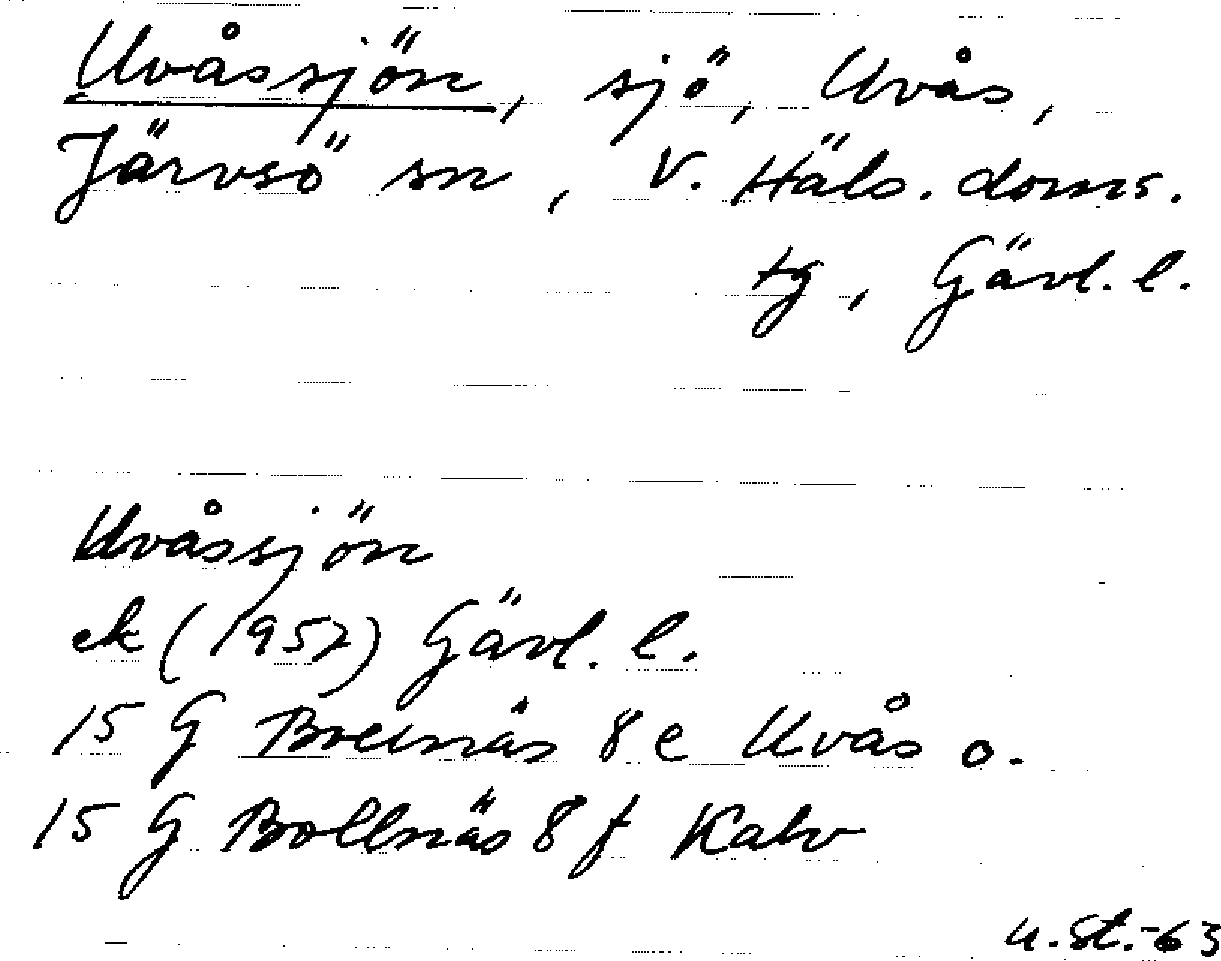 Uvåssjön, sjö, Uvås,
Järvsö sn, V. Häls. doms.
tg, Gävl. l.
Uvåssjön
ek (1957) Gävl. l.
15 G Bollnäs 8 e Uvås o.
15 G Bollnäs 8 f Kalv
u.st.-63